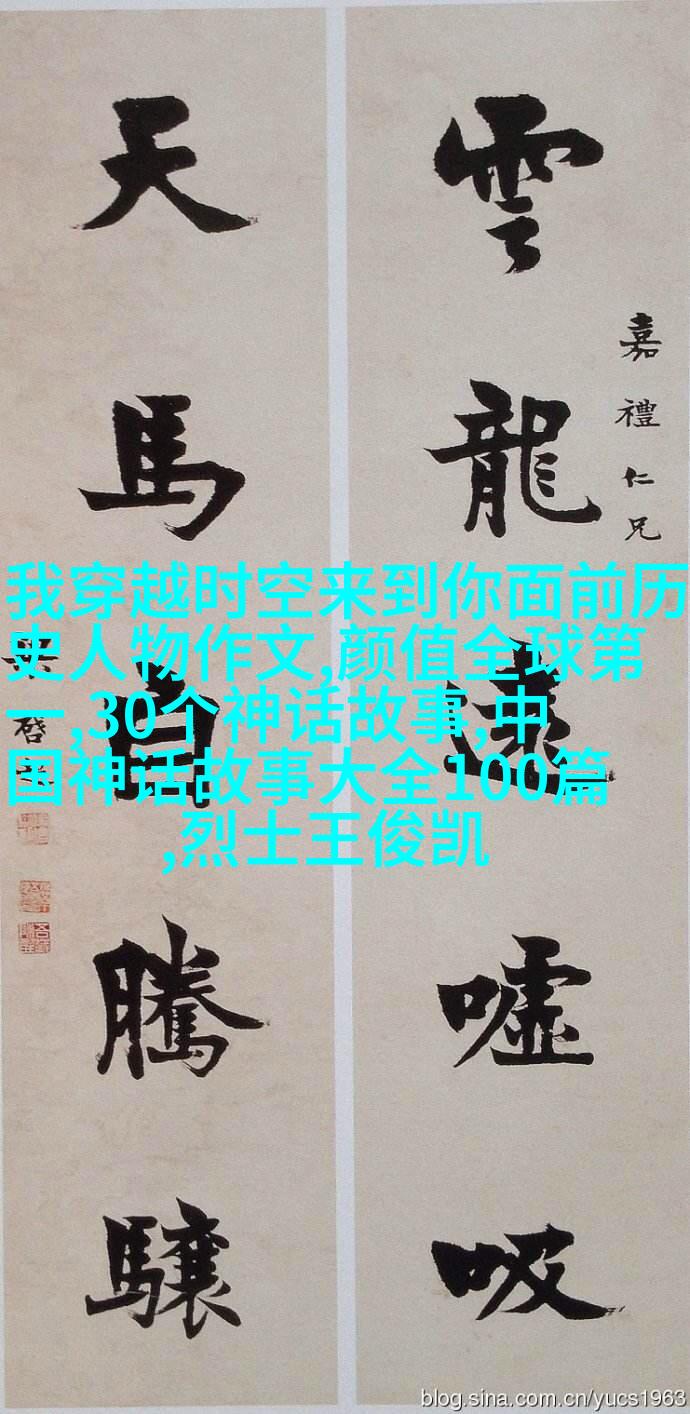 雲龍遠噓吸
嘉禮仁兄
天馬自騰驤
啓
我穿越时空来到你面前历
史人物作文,颜值全球第
一,30个神话故事,中
国神话故事大全100篇
,烈士王俊凯
blog.sina.com.cn/yucs1963